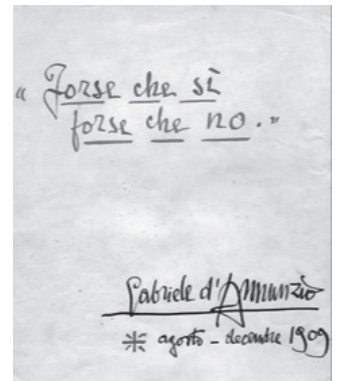 « Forse che sì
forse che no. »
Gabriele d'Annunzio
agosto - decembre 1909